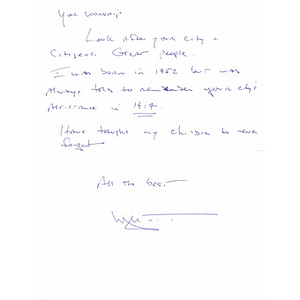 Your worship
Look after your city &
Citizens. Great people.
I was born in 1952 but was
always told to remember your city's
assistance in 1917.
I have taught my children to never
forget.
All the best